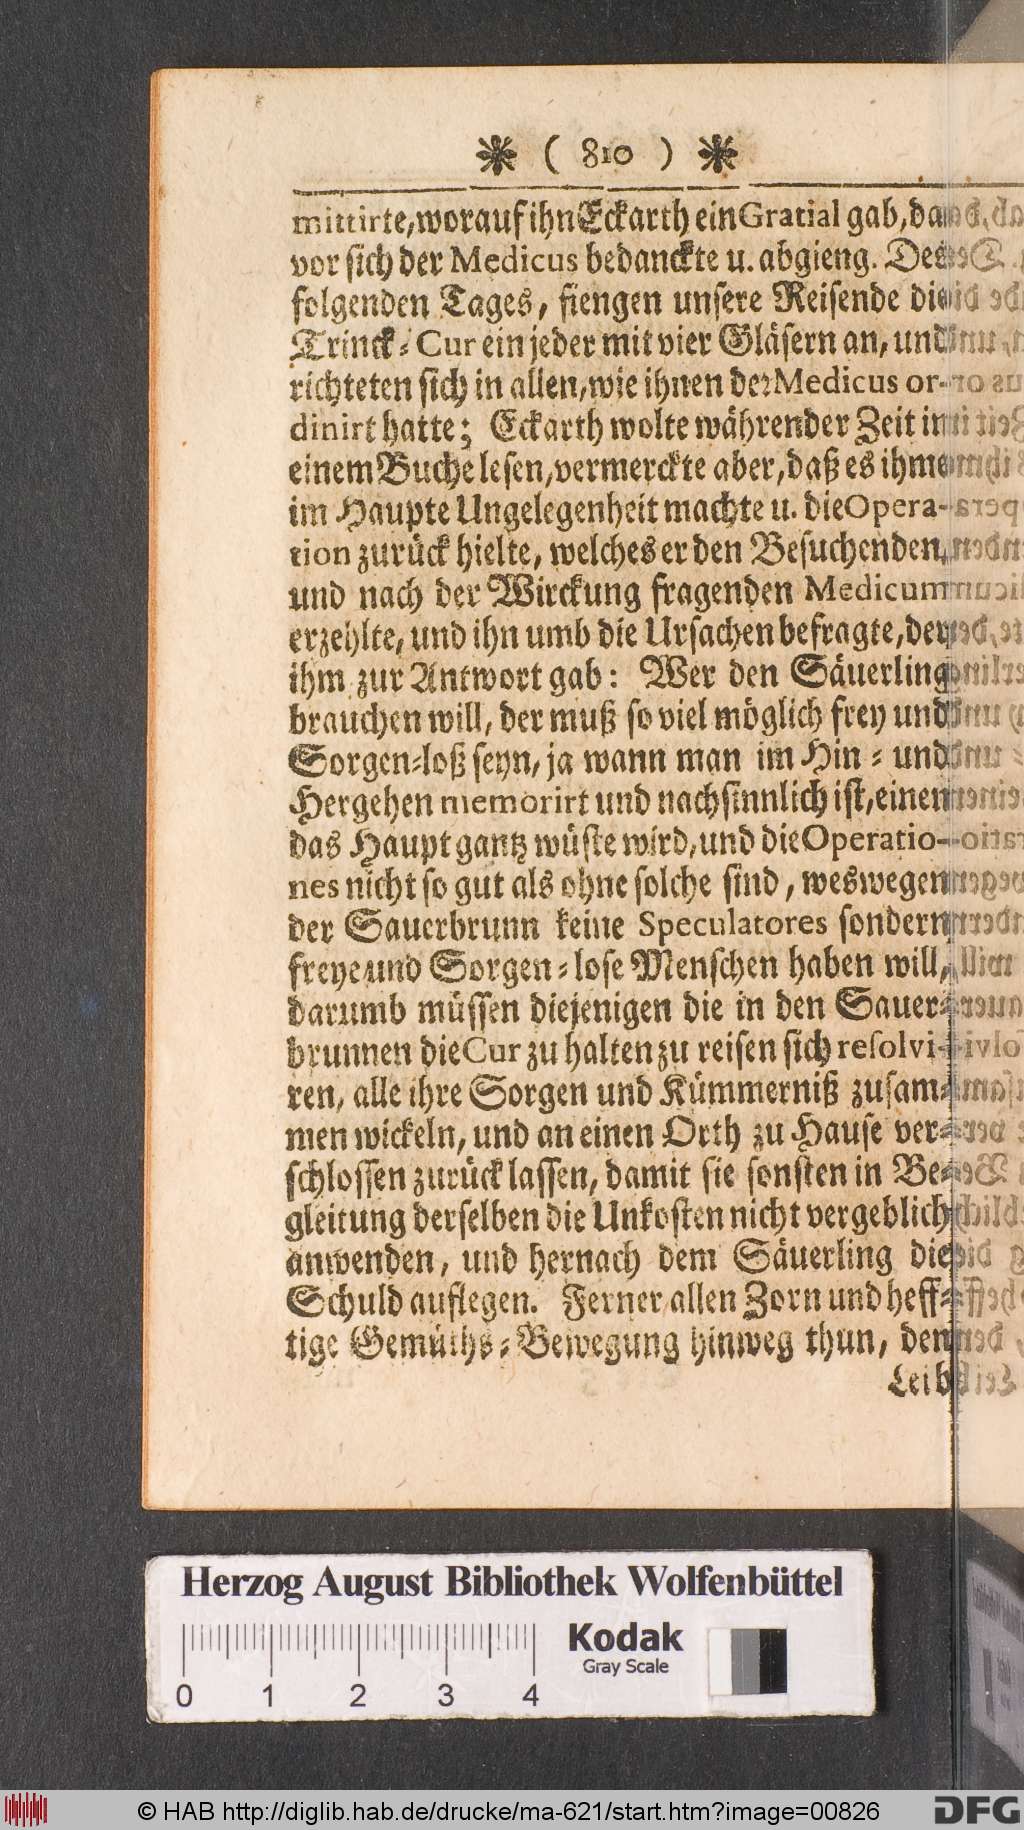 * ( 810 ) *
mittirte, worauf ihn Eckarth ein Gratial gab, da
vor sich der Medicus bedanckte u. abgieng. Des
folgenden Tages, fiengen unsere Reisende die
Trinck-Cur ein jeder mit vier Gläsern an, und
richteten sich in allen, wie ihnen der Medicus or-
dinirt hatte; Eckarth wolte währender Zeit in
einem Buche lesen, vermerckte aber, daß es ihme
im Haupte Ungelegenheit machte u. die Opera-
tion zurück hielte, welches er den Besuchenden,
und nach der Wirckung fragenden Medicum
erzehlte, und ihn umb die Ursachen befragte, der
ihm zur Antwort gab: Wer den Säuerling
brauchen will, der muß so viel möglich frey und
Sorgen-loß seyn, ja wann man im Hin- und
Hergehen memorirt und nachsinnlich ist, einem
das Haupt gantz wüste wird, und die Operatio-
nes nicht so gut als ohne solche sind, weswegen
der Sauerbrunn keine Speculatores sondern
freye und Sorgen-lose Menschen haben will,
darumb müssen diejenigen die in den Sauer-
brunnen die Cur zu halten zu reisen sich resolvi-
ren, alle ihre Sorgen und Kümmerniß zusam-
men wickeln, und an einen Orth zu Hause ver-
schlossen zurück lassen, damit sie sonsten in Be-
gleitung derselben die Unkosten nicht vergeblich
anwenden, und hernach dem Säuerling die
Schuld auflegen. Ferner allen Zorn und heff-
tige Gemüths-Bewegung hinweg thun, denn
Leib
Herzog August Bibliothek Wolfenbüttel
Kodak
Gray Scale
0 1 2 3 4
© HAB http://diglib.hab.de/drucke/ma-621/start.htm?image=00826
DFG